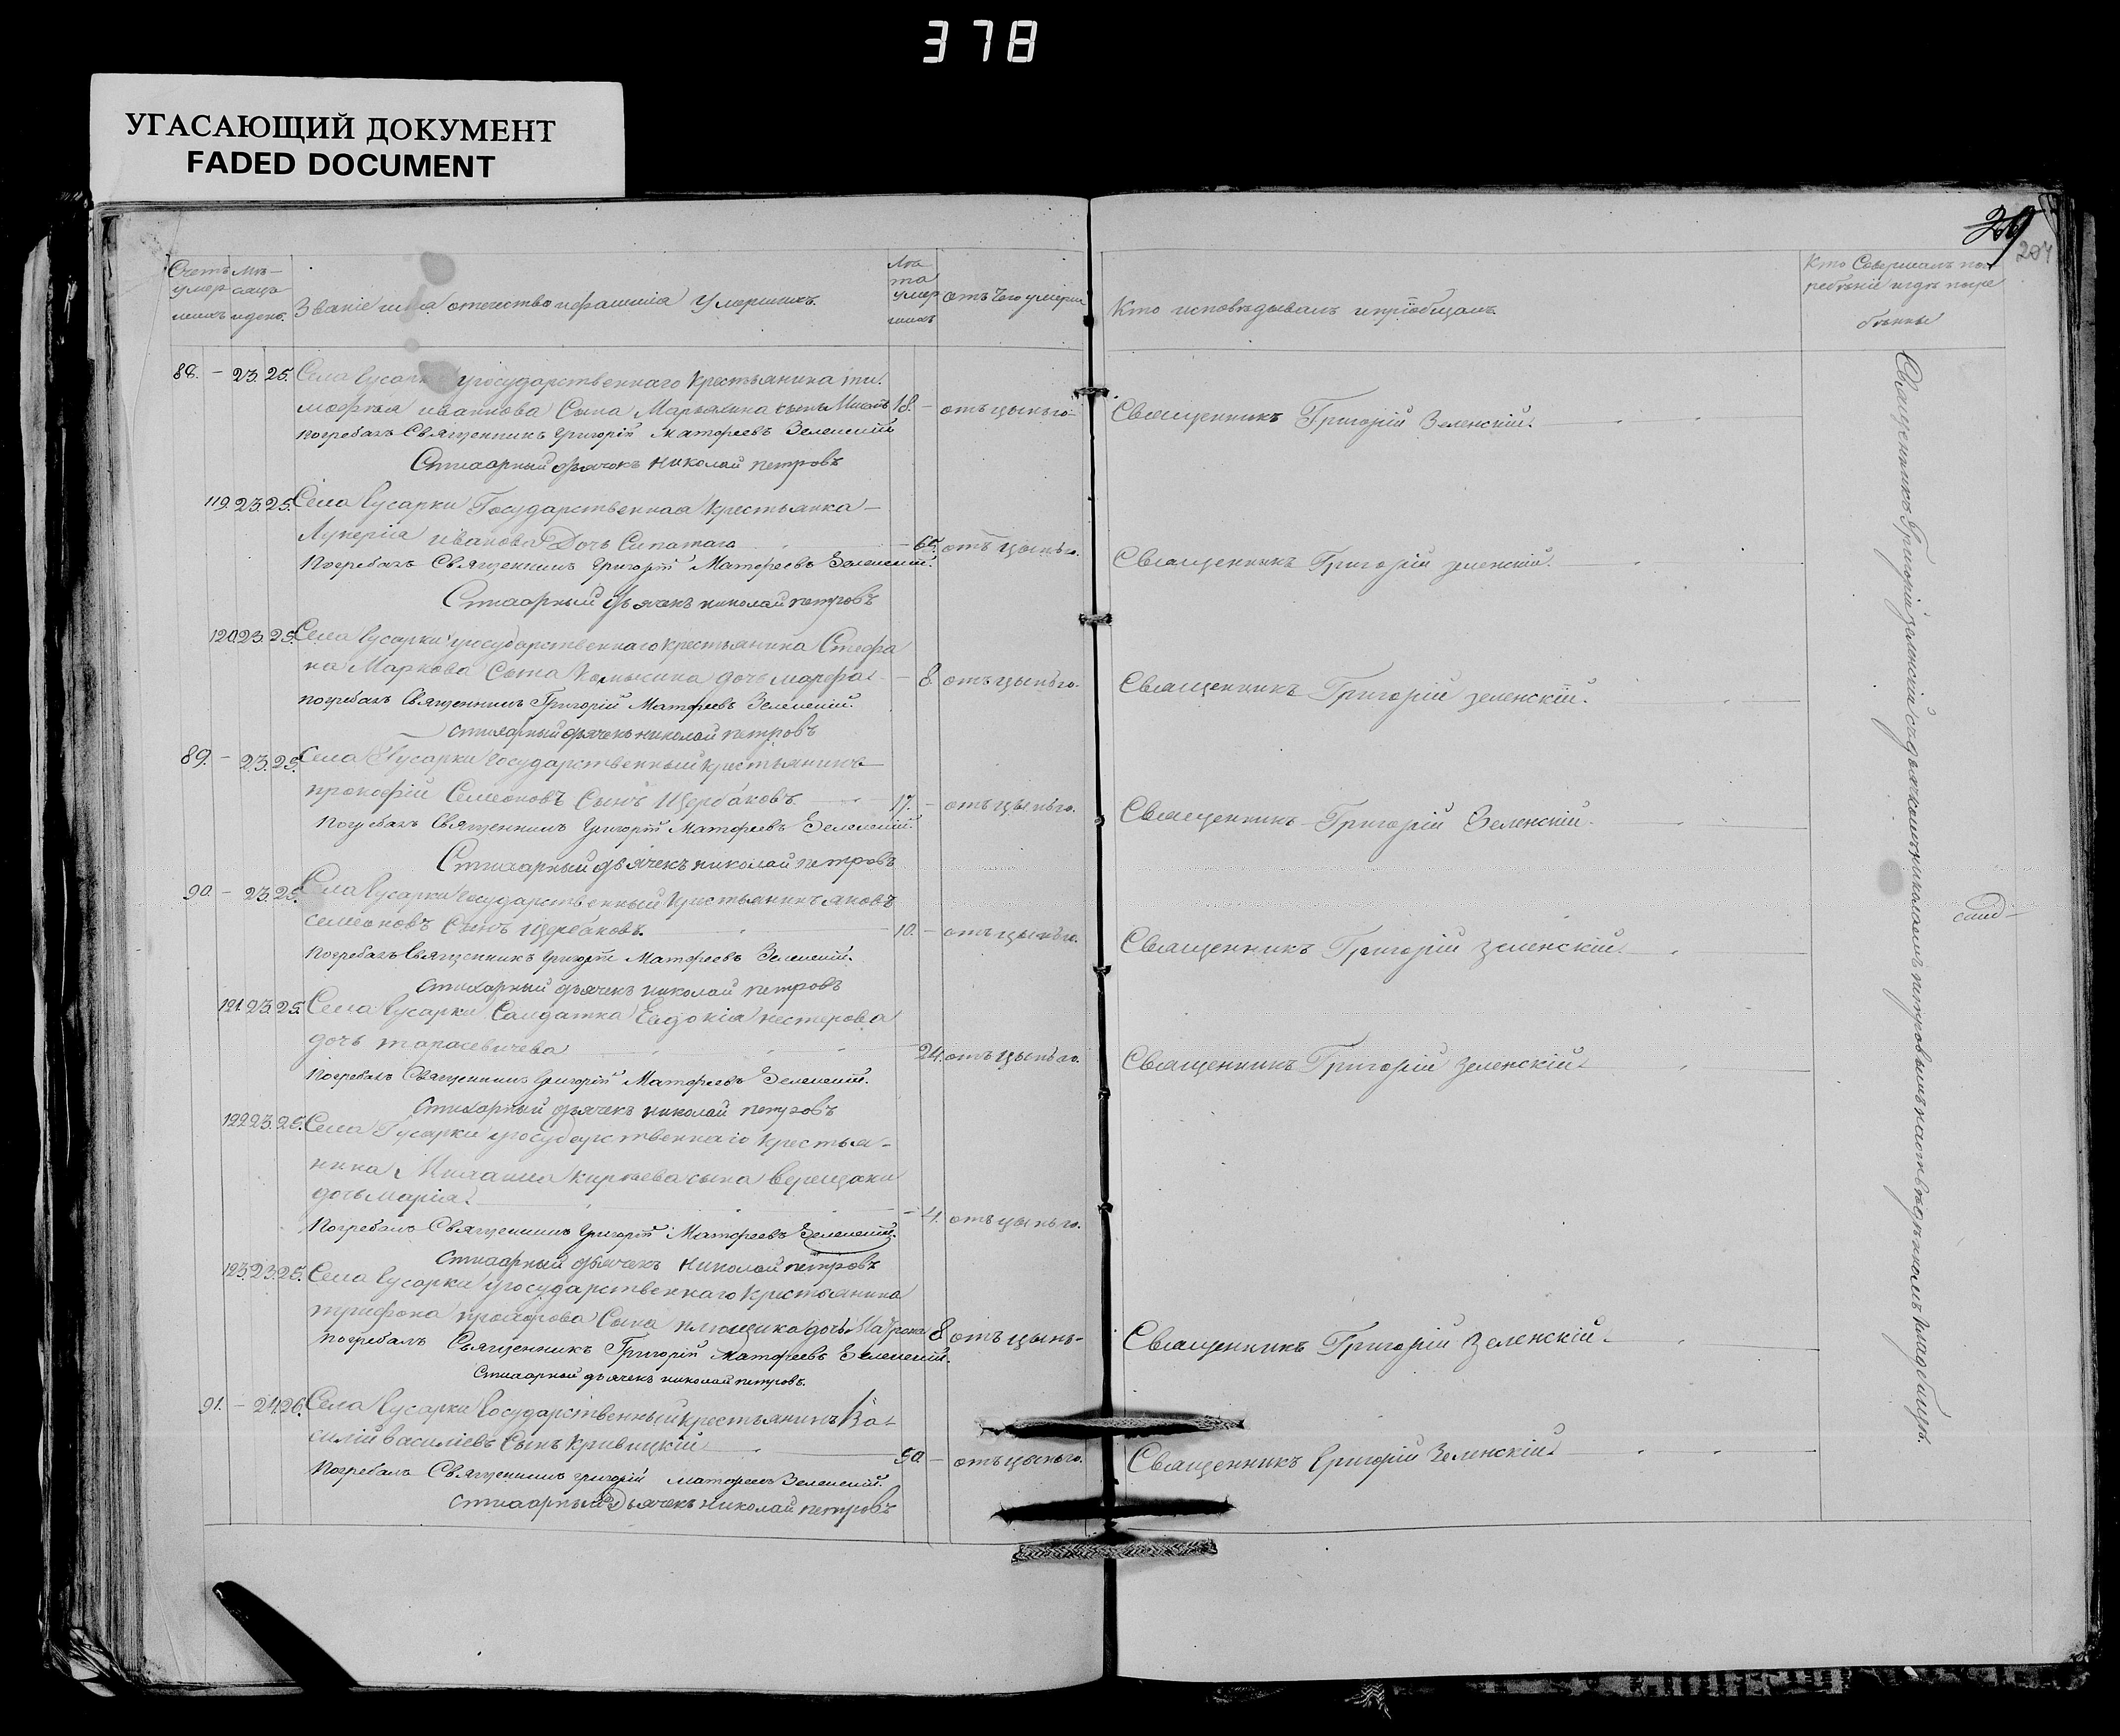 378
УГАСАЮЩИЙ ДОКУМЕНТ
FADED DOCUMENT
29
204
Счетъ умер шихъ
Мѣ— сяцъ и день.
Званіе имя отечество и фамилія умершихъ.
Лѣ та умер шихъ
отъ чего умерли
Кто исповѣдывалъ и пріобщалъ
Кто Совершалъ по гребѣніе и гдѣ погре бѣнны
88. — 23. 25. Села Гусарки государственнаго крестьянина ти-
мофѣя иванова Сына сынъ 18. — отъ цынги Священникъ Григорій Зеленскій.
погребалъ Священникъ Григорій Матфеевъ Зеленскій
Стихарный дьячекъ николай петровъ
119. 23. 25. Села Гусарки Государственная крестьянка—
Лукерія иванова Дочь Сипатаго — 65. отъ цынги. Священникъ Григорій зеленскій.
Погребалъ Священникъ Григорій Матфеевъ Зеленскій.
Стихарный дьячекъ николай петровъ
120. 23. 25. Села Гусарки государственнаго крестьянина Стефа
на Маркова Сына дочь марфа — 8. отъ цынги. Священникъ Григорій зеленскій.
погребалъ Священникъ Григорій Матфеевъ Зеленскій.
стихарный дьячекъ николай петровъ
89. — 23. 25. Села Гусарки Государственный крестьянинъ—
прокофій Семеоновъ Сынъ Щербаковъ. 17. — отъ цынги. Священникъ Григорій Зеленскій.
Погребалъ Священникъ Григорій Матфеевъ Зеленскій.
Стихарный дьячекъ николай петровъ
90. — 23. 25. Села Гусарки Государственный крестьянинъ яковъ
семеоновъ Сынъ щербаковъ. — 10. — отъ цынги. Священникъ Григорій зеленскій.
Погребалъ Священникъ Григорій Матфеевъ Зеленскій.
Стихарный дьячекъ николай петровъ
121. 23. 25. Села Гусарки Салдатка Евдокія нестерова
дочь тарасевичева 24. отъ цынги. Священникъ Григорій Зеленскій.
Погребалъ Священникъ Григорій Матфеевъ Зеленскій.
Стихарный дьячекъ николай петровъ
122. 23. 25. Села Гусарки государственнаго крестья-
нина кирѣева сына верещаки
дочь марія. — 4. отъ цынги.
Погребалъ Священникъ Григорій Матфеевъ Зеленскій.
Стихарный дьячекъ николай петровъ
123. 23. 25. Села Гусарки государственнаго крестьянина
трифона прохорова Сына плющика дочь 8 отъ цынги Священникъ Григорій Зеленскій.
погребалъ Священникъ Григорій Матфеевъ Зеленскій.
Стихарной дьячекъ николай петровъ.
91. — 24. 26. Села Гусарки Государственный крестьянинъ Ва-
силій василіевъ Сынъ кривицкій 50. — отъ цынги. Священникъ Григорій Зеленскій.
Погребалъ Священникъ григорій матфеевъ Зеленскій.
стихарный Дьячекъ николай петровъ
Священникъ Григорій зеленскій съ дьячкомъ николаемъ петровымъ на кладбищѣ.